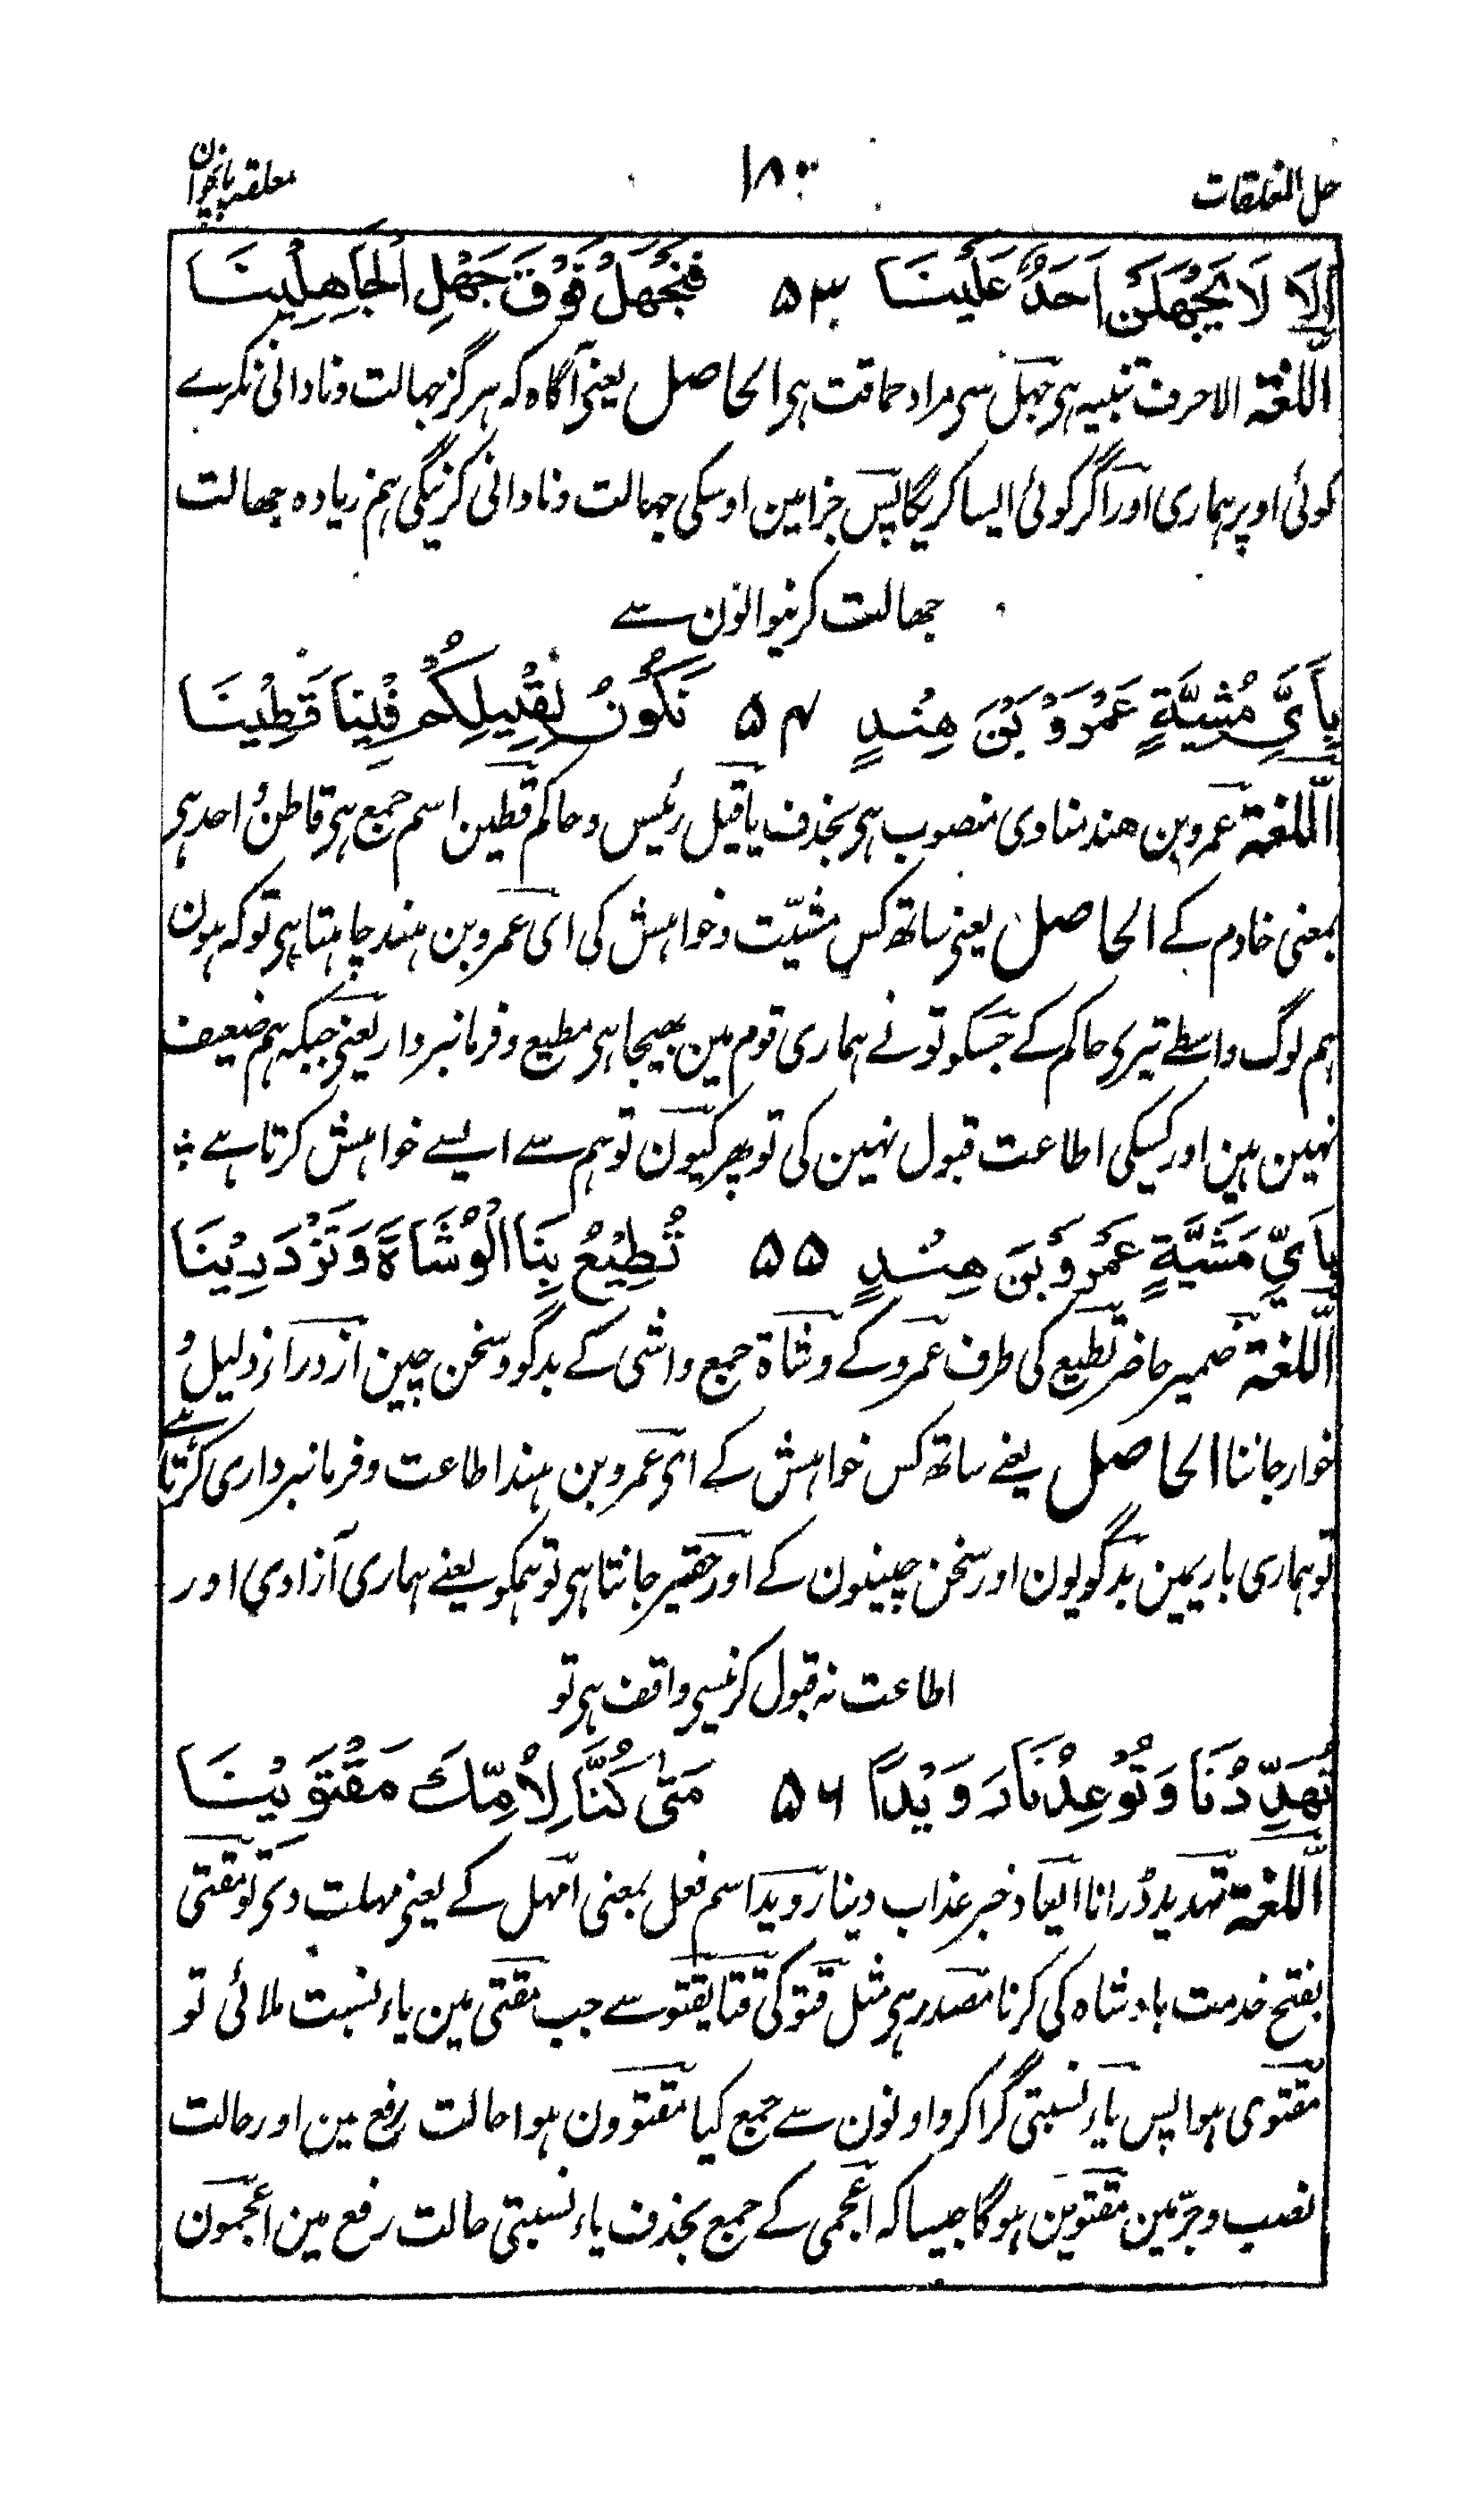 حل المغلقات ١٨٠ معلقہ پانچوان
اَلَا لَا يَجْهَلَنْ اَحَدٌ عَلَيْنَا ٥٣ فَنَجْهَلَ فَوْقَ جَهْلِ الْجَاهِلِيْنَا
اللّغة الا حرف تنبیہ ہی جہل سی مراد حماقت ہی الحاصل یعنی آگاہ کہ ہرگز جہالت و نادانی نکرے
کوئی اوپر ہماری اور اگر کوئی ایسا کریگا پس جزا مین اوسکی جہالت و نادانی کرینگی ہم زیادہ جھالت
جھالت کرنیوالون سے
بِاَيِّ مُشِيَّةٍ عَمْرَوَ بْنَ هِنْدٍ ٥٤ نَكُوْنُ لِقَيْلِكُمْ فِيْنَا قَطِيْنَا
اللّغة عمرو بن ھند منادی منصوب ہی بحذف یا قیل رئیس و حاکم قطین اسم جمع ہی قاطن واحد ہی
بمعنی خادم کے الحاصل یعنی ساتھ کس مشیّت و خواہش کی ای عمرو بن ہند چاہتا ہی تو کہ ہون
ہم لوگ واسطے تیری حاکم کے جسکو تو نے ہماری قوم مین بھیجا ہی مطیع و فرمانبردار یعنی جبکہ ہم ضعیف
نہین ہین اور کسیکی اطاعت قبول نہین کی تو پھر کیون تو ہم سے ایسے خواہش کرتا ہے
بِاَيِّ مَشِيَّةٍ عَمْرَوَ بْنَ هِنْدٍ ٥٥ تُطِيْعُ بِنَا الْوُشَاةَ وَتَزْدَرِيْنَا
اللّغة ضمیر حاضر تطیع کی طرف عمرو کے وشاة جمع واشی کے بدگو و سخن چین ازدراء ذلیل و
خوار جاننا الحاصل یعنے ساتھ کس خواہش کے ای عمرو بن ہند اطاعت و فرمانبرداری کرتا ہے
تو ہماری باریمین بدگویون اور سخن چینون کے اور حقیر جانتا ہی تو ہمکو یعنے ہماری آزادي اور
اطاعت نہ قبول کرنیسی واقف ہی تو
تُهَدِّدُنَا وَتُوْعِدُنَا رَوَيْدًا ٥٦ مَتٰى كُنَّا لِاُمِّكَ مَقْتَوِيْنَا
اللّغة تہدید ڈرانا ایعاد خبر عذاب دینا رویدا اسم فعل بمعنی امهل کے یعنی مہلت دی تو مقتی
بفتح خدمت بادشاہ کی کرنا مصدر ہی مثل قتو کی قتا یقتو سے جب مقتی مین یاء نسبت ملائی تو
مقتوی ہوا پس یاء نسبتی گرا کر واو نون سے جمع کیا مقتوون ہوا حالت رفع مین اور حالت
نصب و جرّ مین مقتوین ہوگا جیسا کہ اعجمی کے جمع بحذف یاء نسبتی حالت رفع مین اعجمون